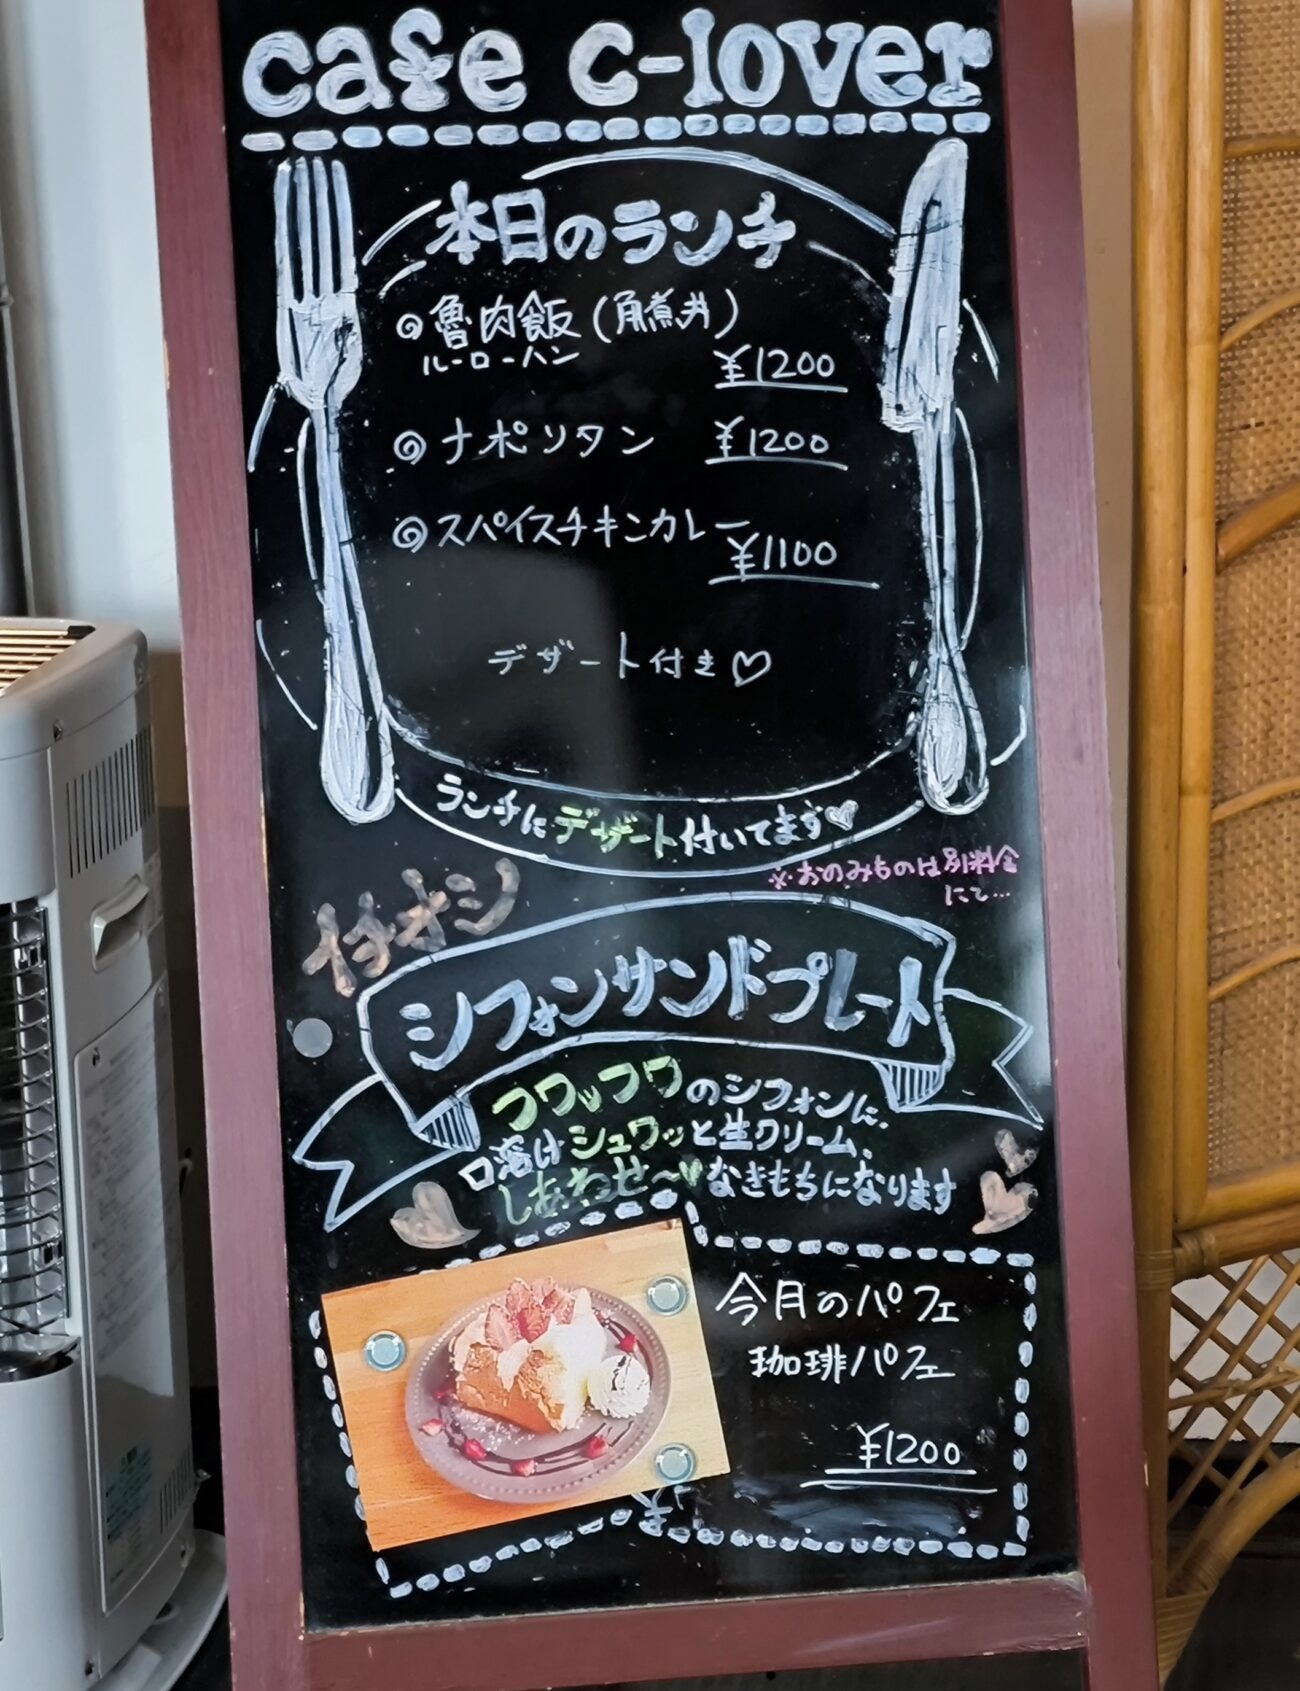 cafe c-lover
本日のランチ
◎魯肉飯(角煮丼)
ルーローハン
¥1200
◎ナポリタン ¥1200
◎スパイスチキンカレー
¥1100
デザート付き♡
ランチにデザート付いてます♡
※おのみものは別料金
にて…
イチオシ
シフォンサンドプレート
フワッフワのシフォンに、
口溶けシュワッと生クリーム、
しあわせ〜♥なきもちになります
今月のパフェ
珈琲パフェ
¥1200